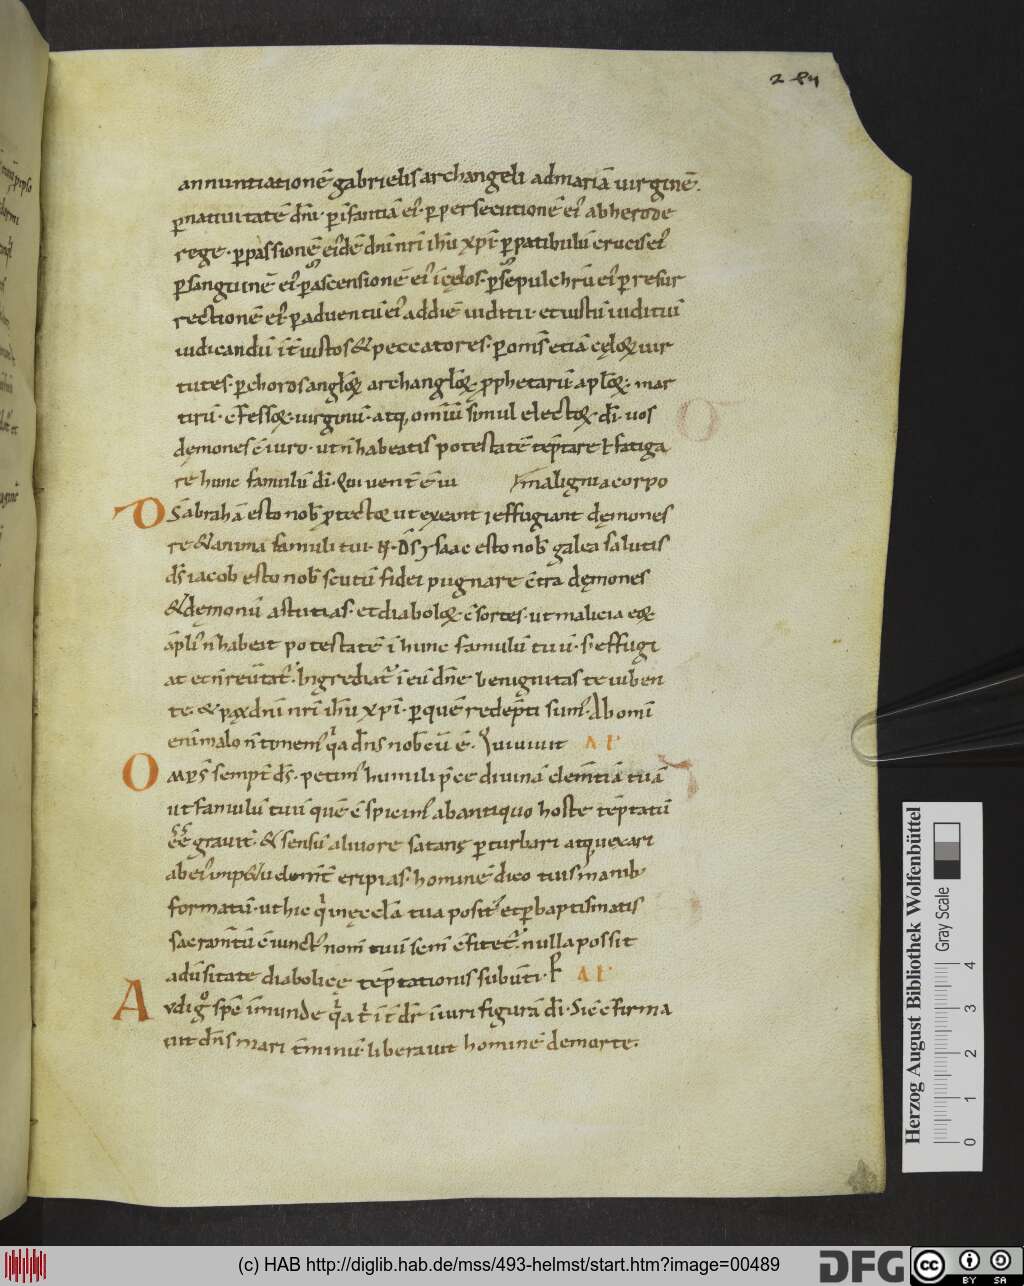 284
annuntiationē gabrielis archangeli ad mariā uirginē.
ꝑ natiuitatē dñi · ꝑ īfantiā ei᾽ · ꝑ persecutionē ei᾽ ab herode
rege · ꝑ passionē eidē dñi nr̄i ih̄u xp̄i · ꝑ patibulū crucis ei᾽
ꝑ sanguinē ei᾽ · ꝑ ascensionē ei᾽ ī cęlos · ꝑ sepulchrū ei᾽ ꝑ resur
rectionē ei᾽ · ꝑ aduentū ei᾽ ad diē iuditii · et iustū iuditiū
iudicandū īt iustos & peccatores · ꝑ om̄s etiā cęloꝝ uir
tutes · ꝑ choros angl̄oꝝ archangl̄oꝝ ꝓphetarū apl̄oꝝ · mar
tirū · c̄fessoꝝ · uirginū · atq, omniū simul electoꝝ · dī · uos
dęmones c̄iuro · ut n̄ habeatis potestatē tēptare ł fatiga
re hunc famulū dī · Qui uent̄ ē iu maligni a corpo
DS abrahā esto nob̄ ꝓtectoꝝ ut exeant ⁊ effugiant dęmones
re & anima famuli tui · N · D̄s ysaac esto nob̄ galea salutis
d̄s iacob esto nob̄ scutū fidei pugnare c̄tra dęmones
& dęmonū astutias · et diaboloꝝ c̄sortes · ut malicia eoꝝ
āpli᾽ n̄ habeat potestatē ī hunc famulū tuū · s; effugi
at et n̄ reūtat᾽ · Ingrediat᾽ ī eū dn̄e benignitas te iuben
te · & pax dn̄i nr̄i ih̄u xp̄i · ꝑ quē redēpti sum᾽ · Ab omī
enī malo n̄ timem᾽ q̄a dn̄s nob̄cū ē · Qui uiuit AP
OMPS sempt̄ d̄s · petim᾽ humili p̄ce diuinā clem̄tiā tuā
ut famulū tuū quē c̄spicim᾽ ab antiquo hoste tēptatū
eē grauit̄ · & sensū a liuore satanę ꝑturbari atq uexari
ab ei᾽ impetu clem̄t eripias · hominē dico tuis manib᾽
formatū · ut hic q̄ in ęccl̄a tua posit᾽ et ꝑ baptismatis
sacram̄tū c̄iunct᾽ nom̄ tuū sem̄ c̄fitet᾽ · nulla possit
adūsitate diabolice tēptationis subūti · P AP
AUdi g̊ sp̄c īmunde q̄a t̄ īt d̄r īiuri figurā dī · Sic c̄firma
uit dn̄s mari t̄minū · liberauit hominē de morte ·
Herzog August Bibliothek Wolfenbüttel
Gray Scale
0 1 2 3 4
(c) HAB http://diglib.hab.de/mss/493-helmst/start.htm?image=00489
DFG
cc BY SA